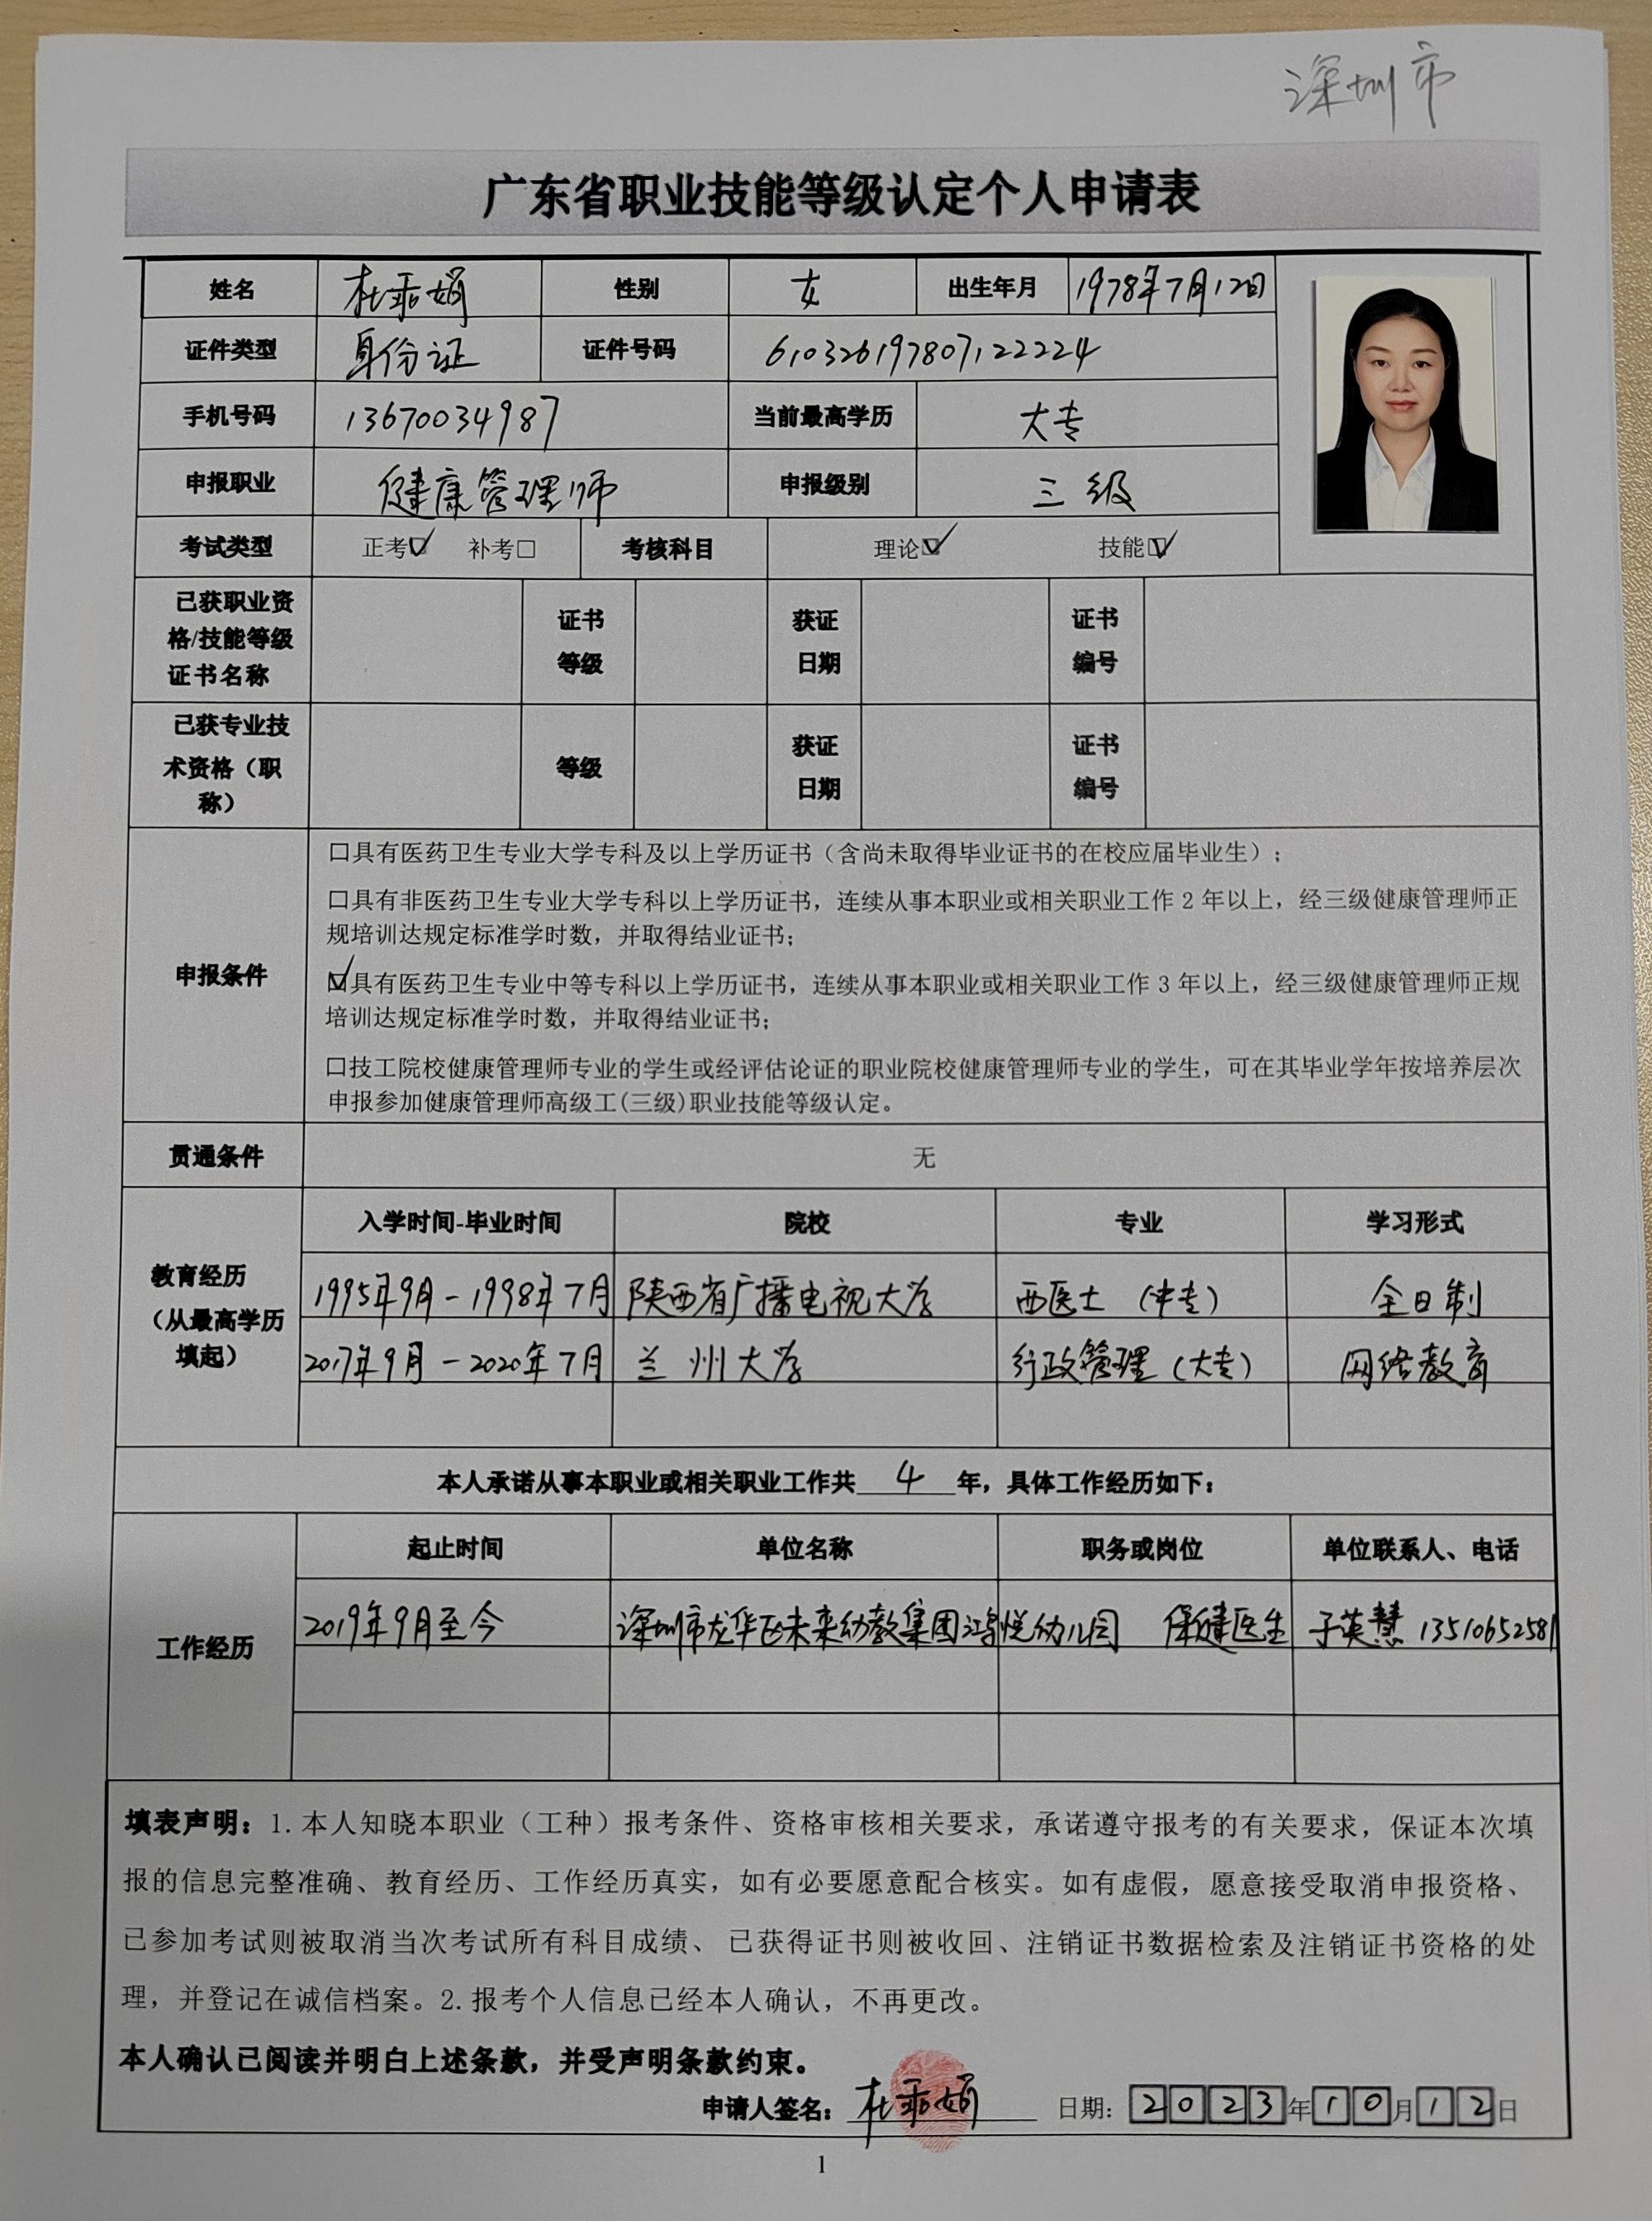 深圳市
广东省职业技能等级认定个人申请表
姓名 杜乖娟 性别 女 出生年月 1978年7月12日
证件类型 身份证 证件号码 610326197807122224
手机号码 13670034987 当前最高学历 大专
申报职业 健康管理师 申报级别 三级
考试类型 正考☑ 补考□ 考核科目 理论☑ 技能☑
已获职业资格/技能等级证书名称 证书等级 获证日期 证书编号
已获专业技术资格（职称） 等级 获证日期 证书编号
申报条件
□具有医药卫生专业大学专科及以上学历证书（含尚未取得毕业证书的在校应届毕业生）；
□具有非医药卫生专业大学专科以上学历证书，连续从事本职业或相关职业工作 2 年以上，经三级健康管理师正
规培训达规定标准学时数，并取得结业证书；
☑具有医药卫生专业中等专科以上学历证书，连续从事本职业或相关职业工作 3 年以上，经三级健康管理师正规
培训达规定标准学时数，并取得结业证书；
□技工院校健康管理师专业的学生或经评估论证的职业院校健康管理师专业的学生，可在其毕业学年按培养层次
申报参加健康管理师高级工(三级)职业技能等级认定。
贯通条件 无
教育经历（从最高学历填起）
入学时间-毕业时间 院校 专业 学习形式
1995年9月-1998年7月 陕西省广播电视大学 西医士（中专） 全日制
2017年9月-2020年7月 兰州大学 行政管理（大专） 网络教育
本人承诺从事本职业或相关职业工作共 4 年，具体工作经历如下：
工作经历
起止时间 单位名称 职务或岗位 单位联系人、电话
2019年9月至今 深圳市龙华区未来幼教集团鸿悦幼儿园 保健医生 于英慧 13510652581
填表声明：1.本人知晓本职业（工种）报考条件、资格审核相关要求，承诺遵守报考的有关要求，保证本次填
报的信息完整准确、教育经历、工作经历真实，如有必要愿意配合核实。如有虚假，愿意接受取消申报资格、
已参加考试则被取消当次考试所有科目成绩、 已获得证书则被收回、注销证书数据检索及注销证书资格的处
理，并登记在诚信档案。2.报考个人信息已经本人确认，不再更改。
本人确认已阅读并明白上述条款，并受声明条款约束。
申请人签名：杜乖娟 日期：2023年10月12日
1